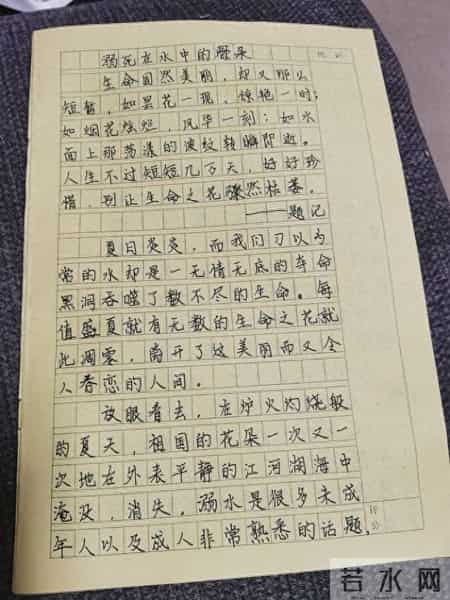 溺死在水中的花朵
生命固然美丽，却又那么
短暂，如昙花一现，惊艳一时；
如烟花灿烂，风华一刻；如水
面上那荡漾的波纹转瞬即逝。
人生不过短短几万天，好好珍
惜，别让生命之花骤然枯萎。
——题记
夏日炎炎，而我们习以为
常的水却是一无情无底的夺命
黑洞吞噬了数不尽的生命。每
值盛夏就有无数的生命之花就
此凋零，离开了这美丽而又令
人眷恋的人间。
放眼看去，在炉火灼烧般
的夏天，祖国的花朵一次又一
次地在外表平静的江河湖海中
淹没，消失，溺水是很多未成
年人以及成人非常熟悉的话题，
评分
若水网